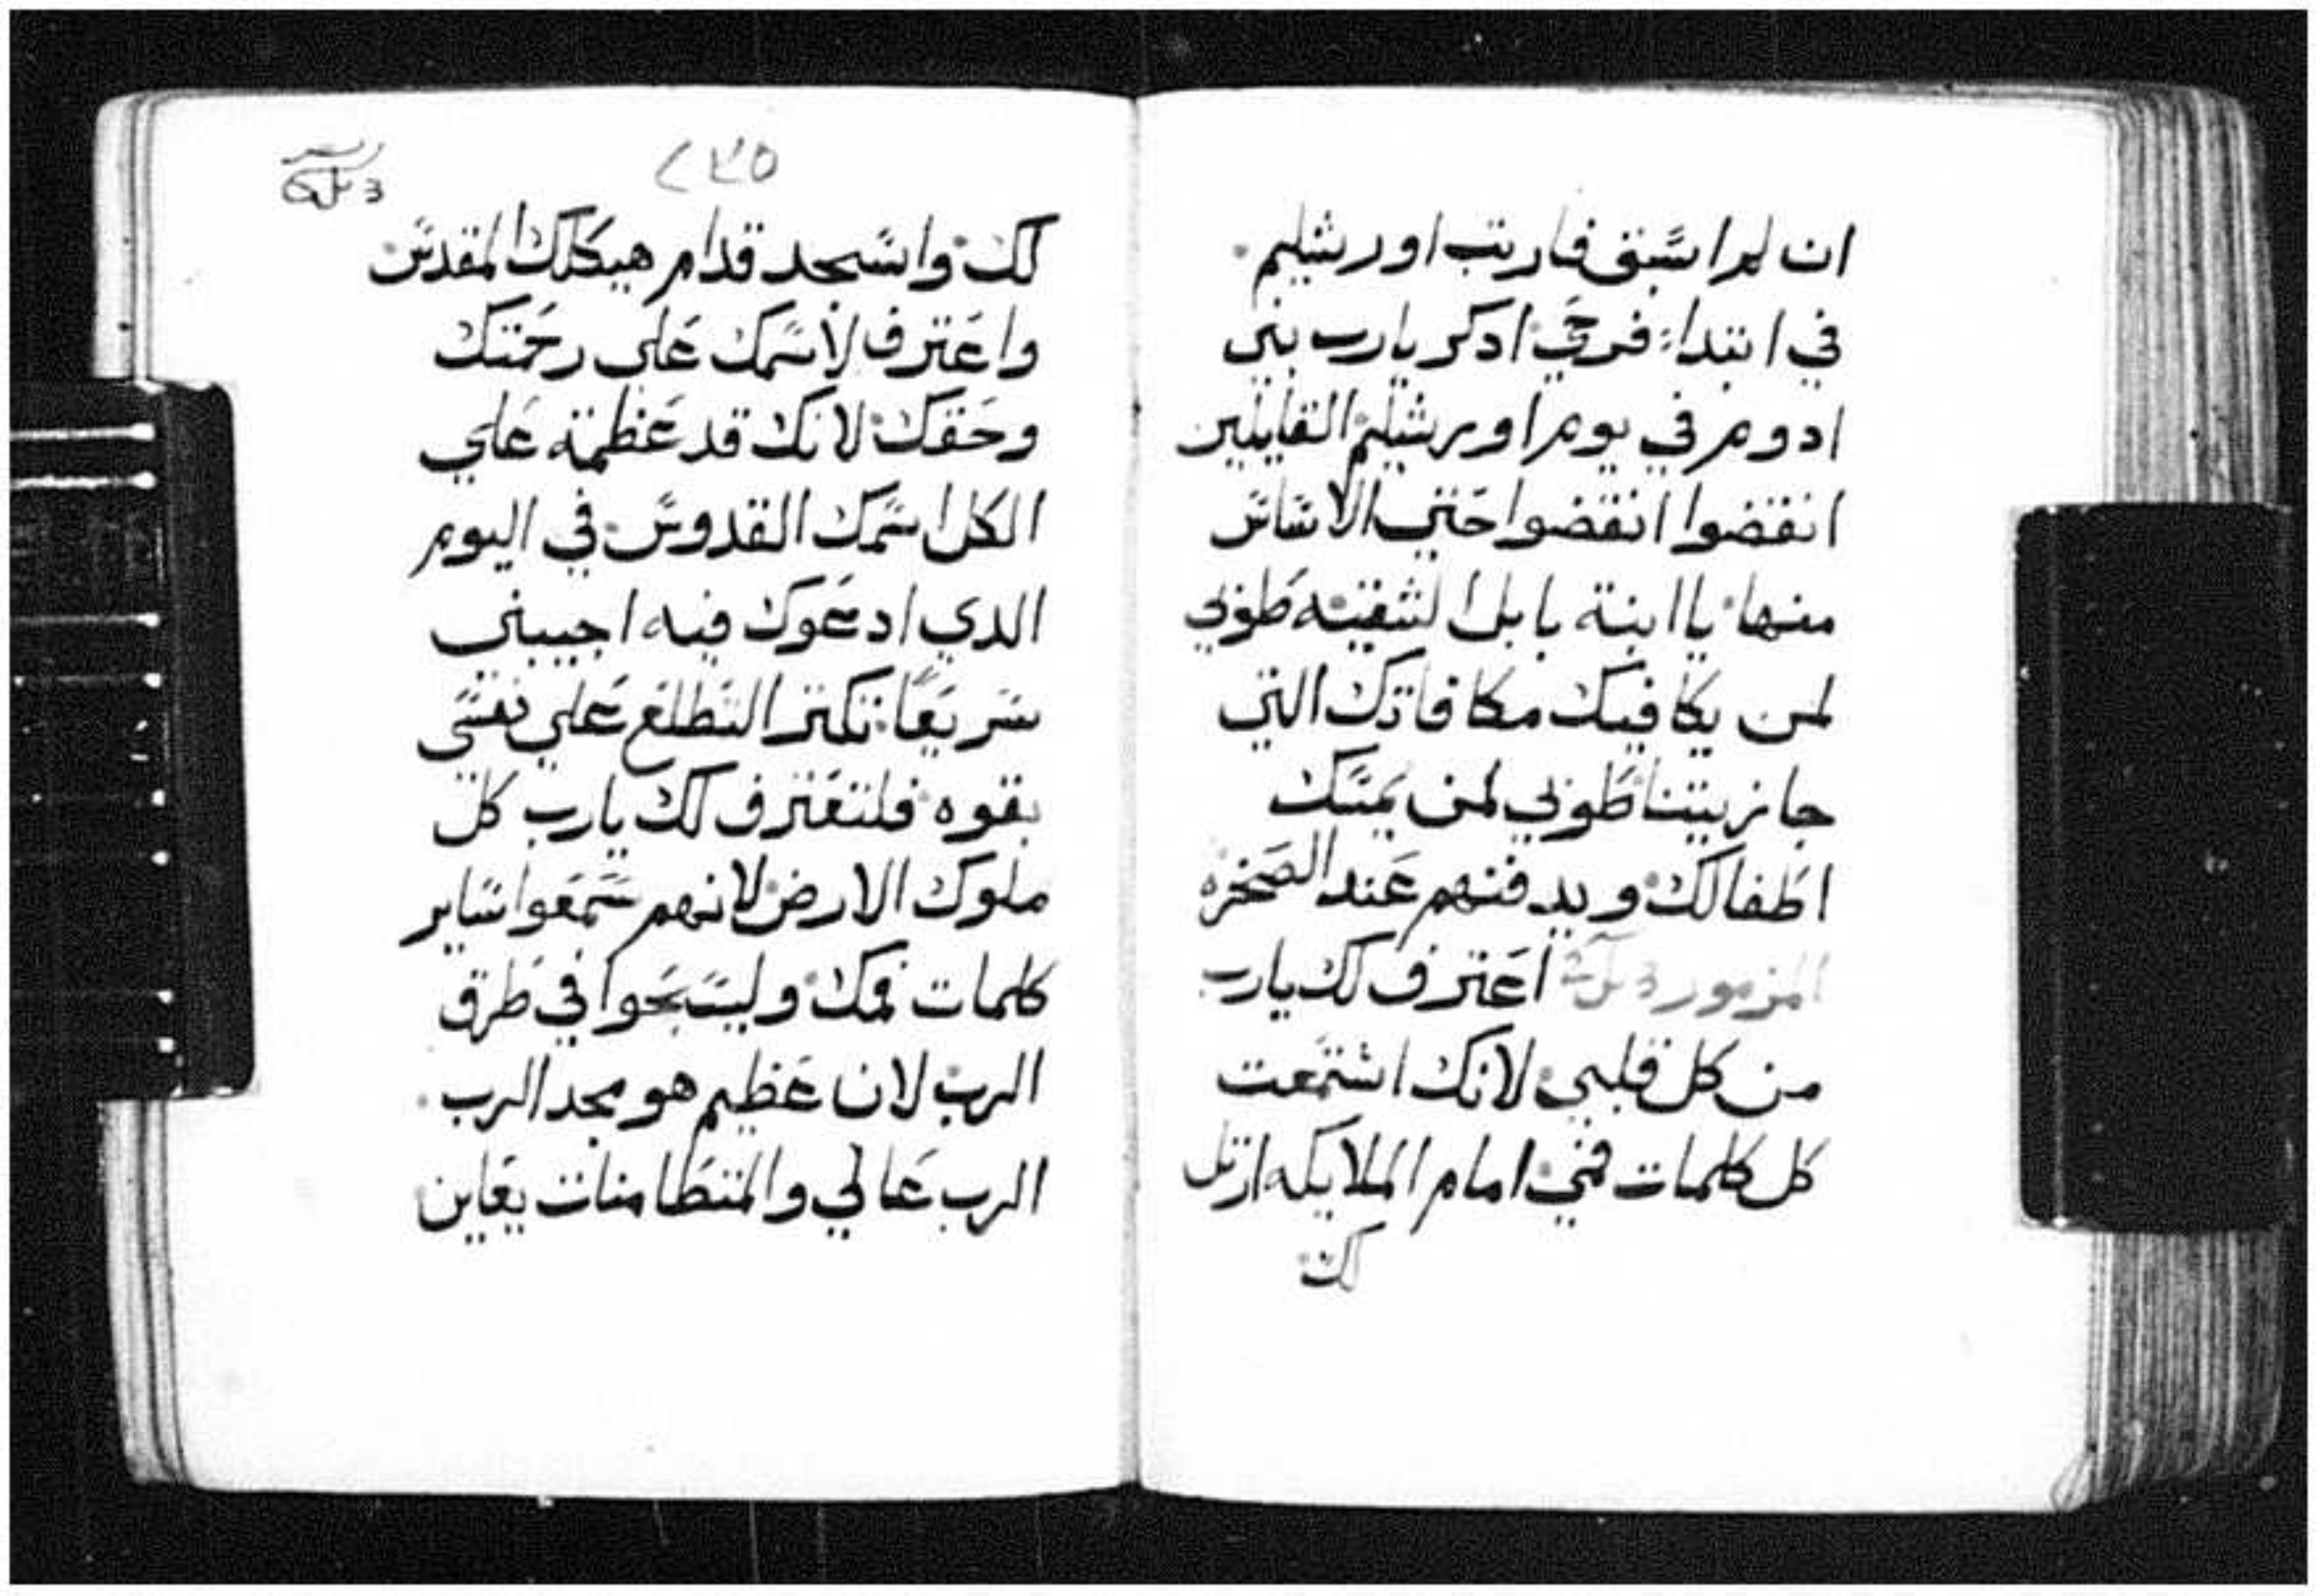 ان لم اسبق فارتب اورشليم
في ابتداء فرحي اذكر يارب بني
ادوم في يوم اورشليم القايلين
انقضوا انقضوا حتي الاساس
منها يا ابنة بابل الشقيه طوبي
لمن يكافيك مكافاتك التي
جازيتنا طوبي لمن يمسك
اطفالك ويدفنهم عند الصخره
المزمور اعترف لك يارب
من كل قلبي لانك استمعت
كل كلمات فمي امام الملايكه ارتل
لك
٢٣٥
لك واسجد قدام هيكلك المقدس
واعترف لاسمك علي رحمتك
وحقك لانك قد عظمة علي
الكل اسمك القدوس في اليوم
الدي ادعوك فيه اجيبني
سريعا تكتر التطلع علي نفسي
بقوه فلتعترف لك يارب كل
ملوك الارض لانهم سمعوا ساير
كلمات فمك وليسبحوا في طرق
الرب لان عظيم هو مجد الرب
الرب عالي والمتطامنات يعاين